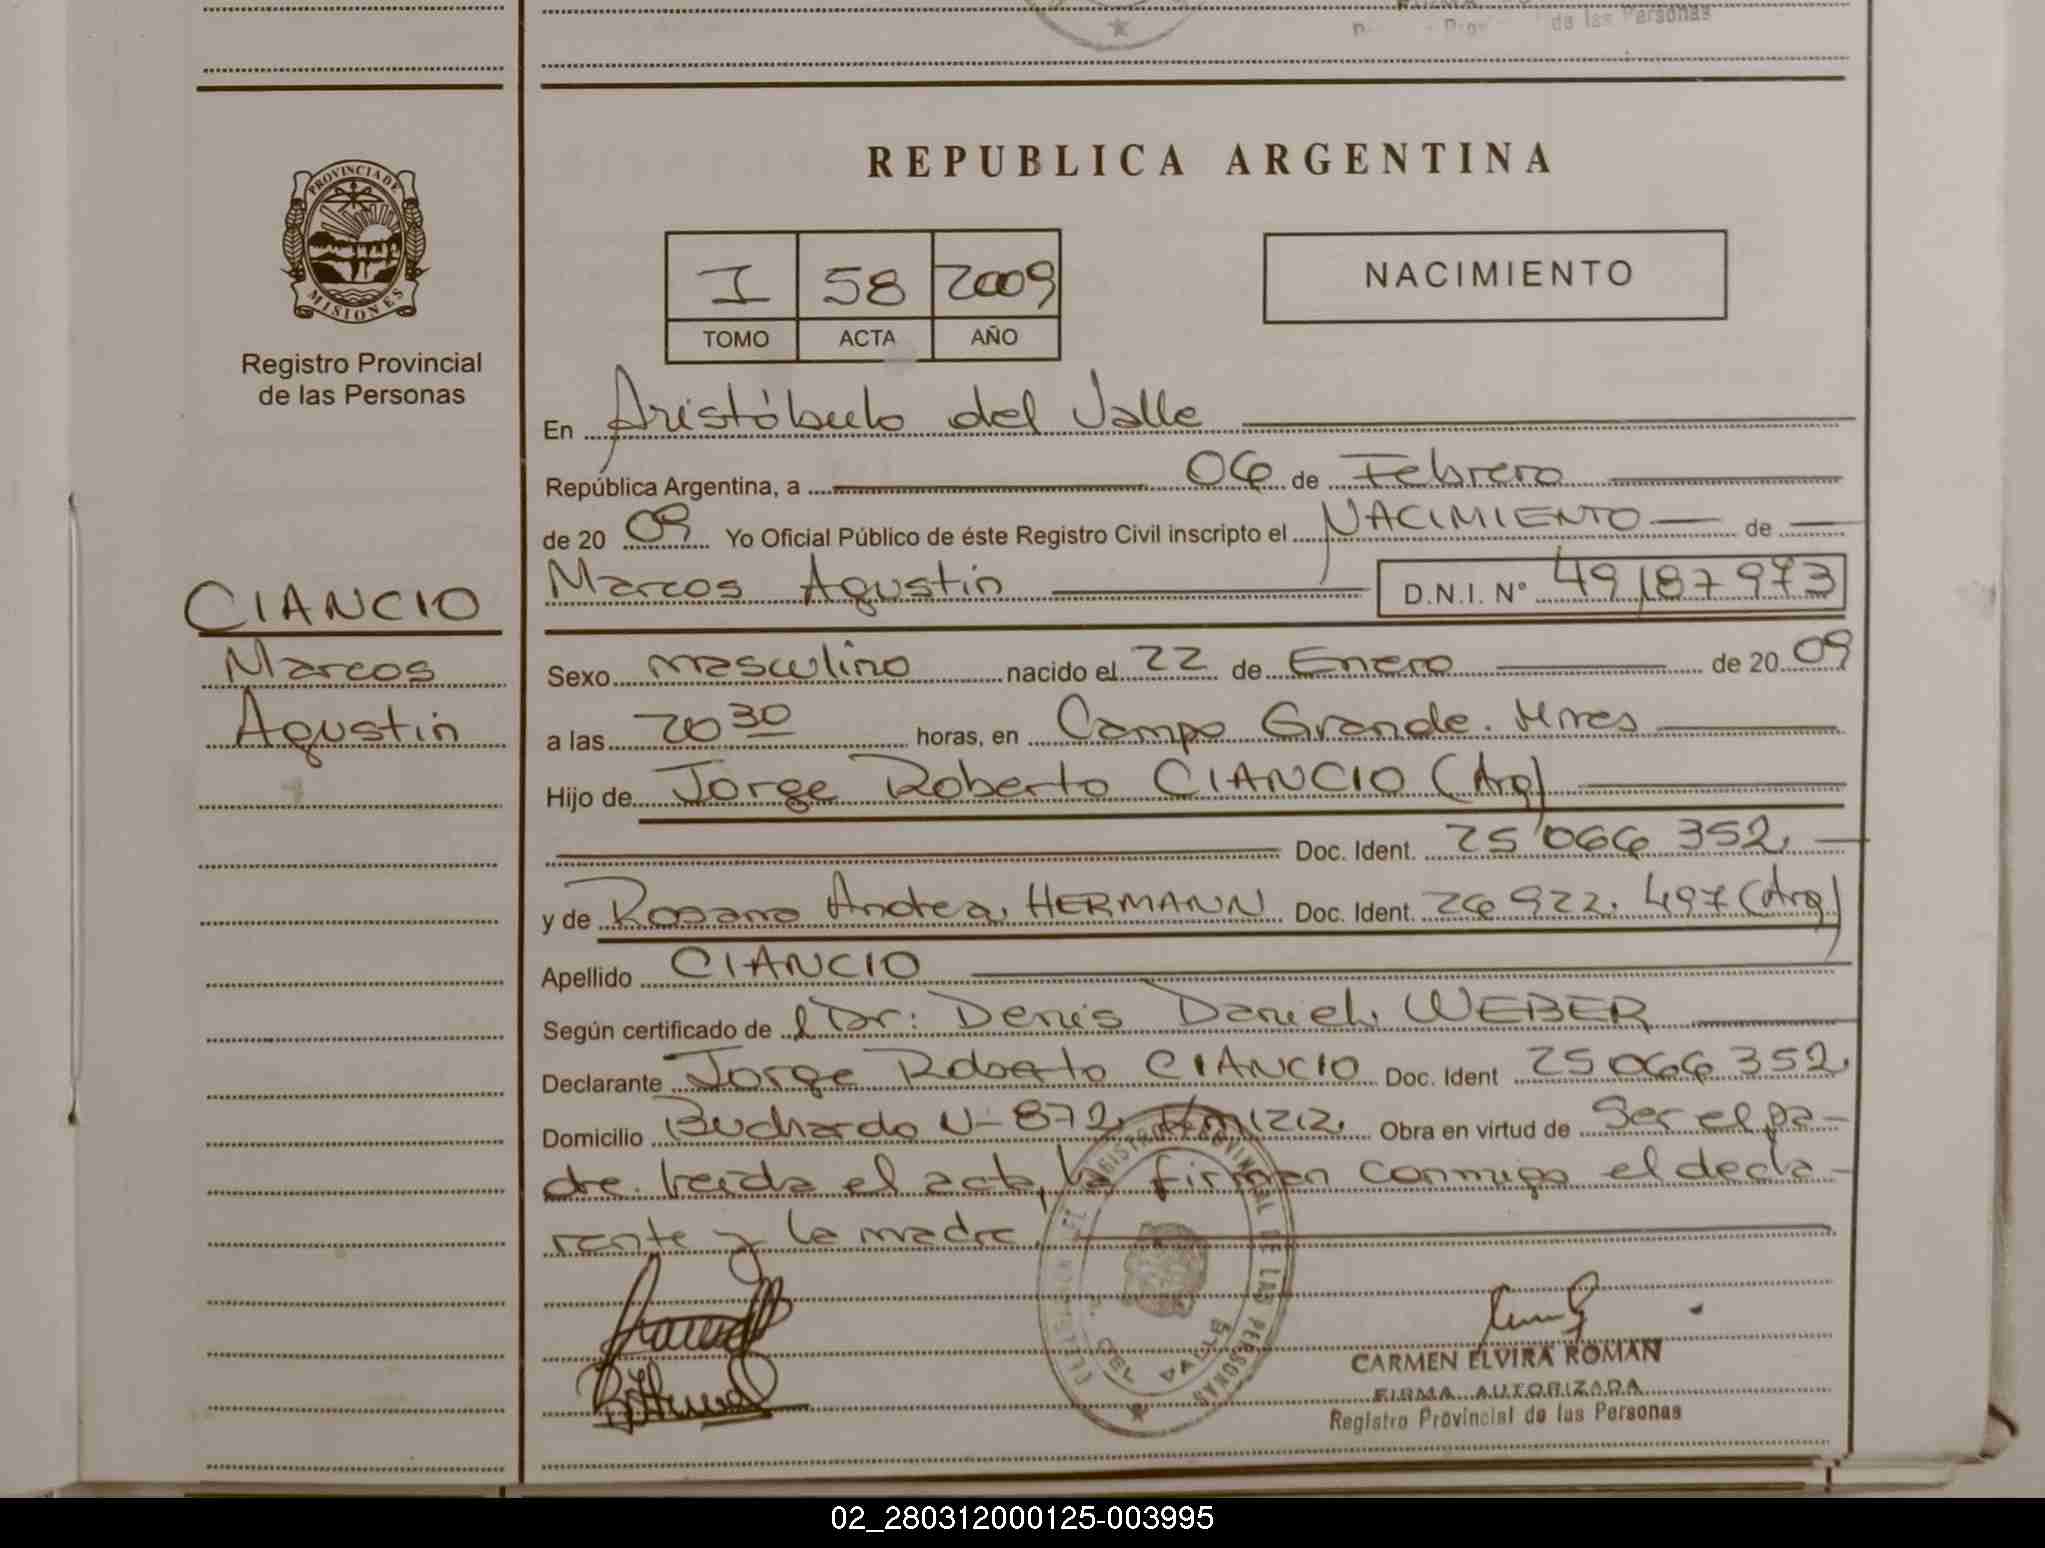 de las Personas
PROVINCIA DE
MISIONES
Registro Provincial
de las Personas
REPUBLICA ARGENTINA
I 58 2009
TOMO ACTA AÑO
NACIMIENTO
En Aristóbulo del Valle
República Argentina, a 06 de Febrero
de 20 09 Yo Oficial Público de éste Registro Civil inscripto el NACIMIENTO de
Marcos Agustin D.N.I. N° 49187973
CIANCIO
Marcos
Agustin
Sexo masculino nacido el 22 de Enero de 20 09
a las 20 30 horas, en Campo Grande. Mnes
Hijo de Jorge Roberto CIANCIO (Arg)
Doc. Ident. 25066352
y de Rosana Andrea HERMANN Doc. Ident. 26922.497 (Arg)
Apellido CIANCIO
Según certificado de Dr: Denis Daniel WEBER
Declarante Jorge Roberto CIANCIO Doc. Ident 25066352
Domicilio Buchardo N- 872 Km 1212 Obra en virtud de Ser el pa-
dre. leida el acta, la firman conmigo el decla-
rante y la madre
REGISTRO PROVINCIAL DE LAS PERSONAS
CARMEN ELVIRA ROMAN
FIRMA AUTORIZADA
Registro Provincial de las Personas
02_280312000125-003995